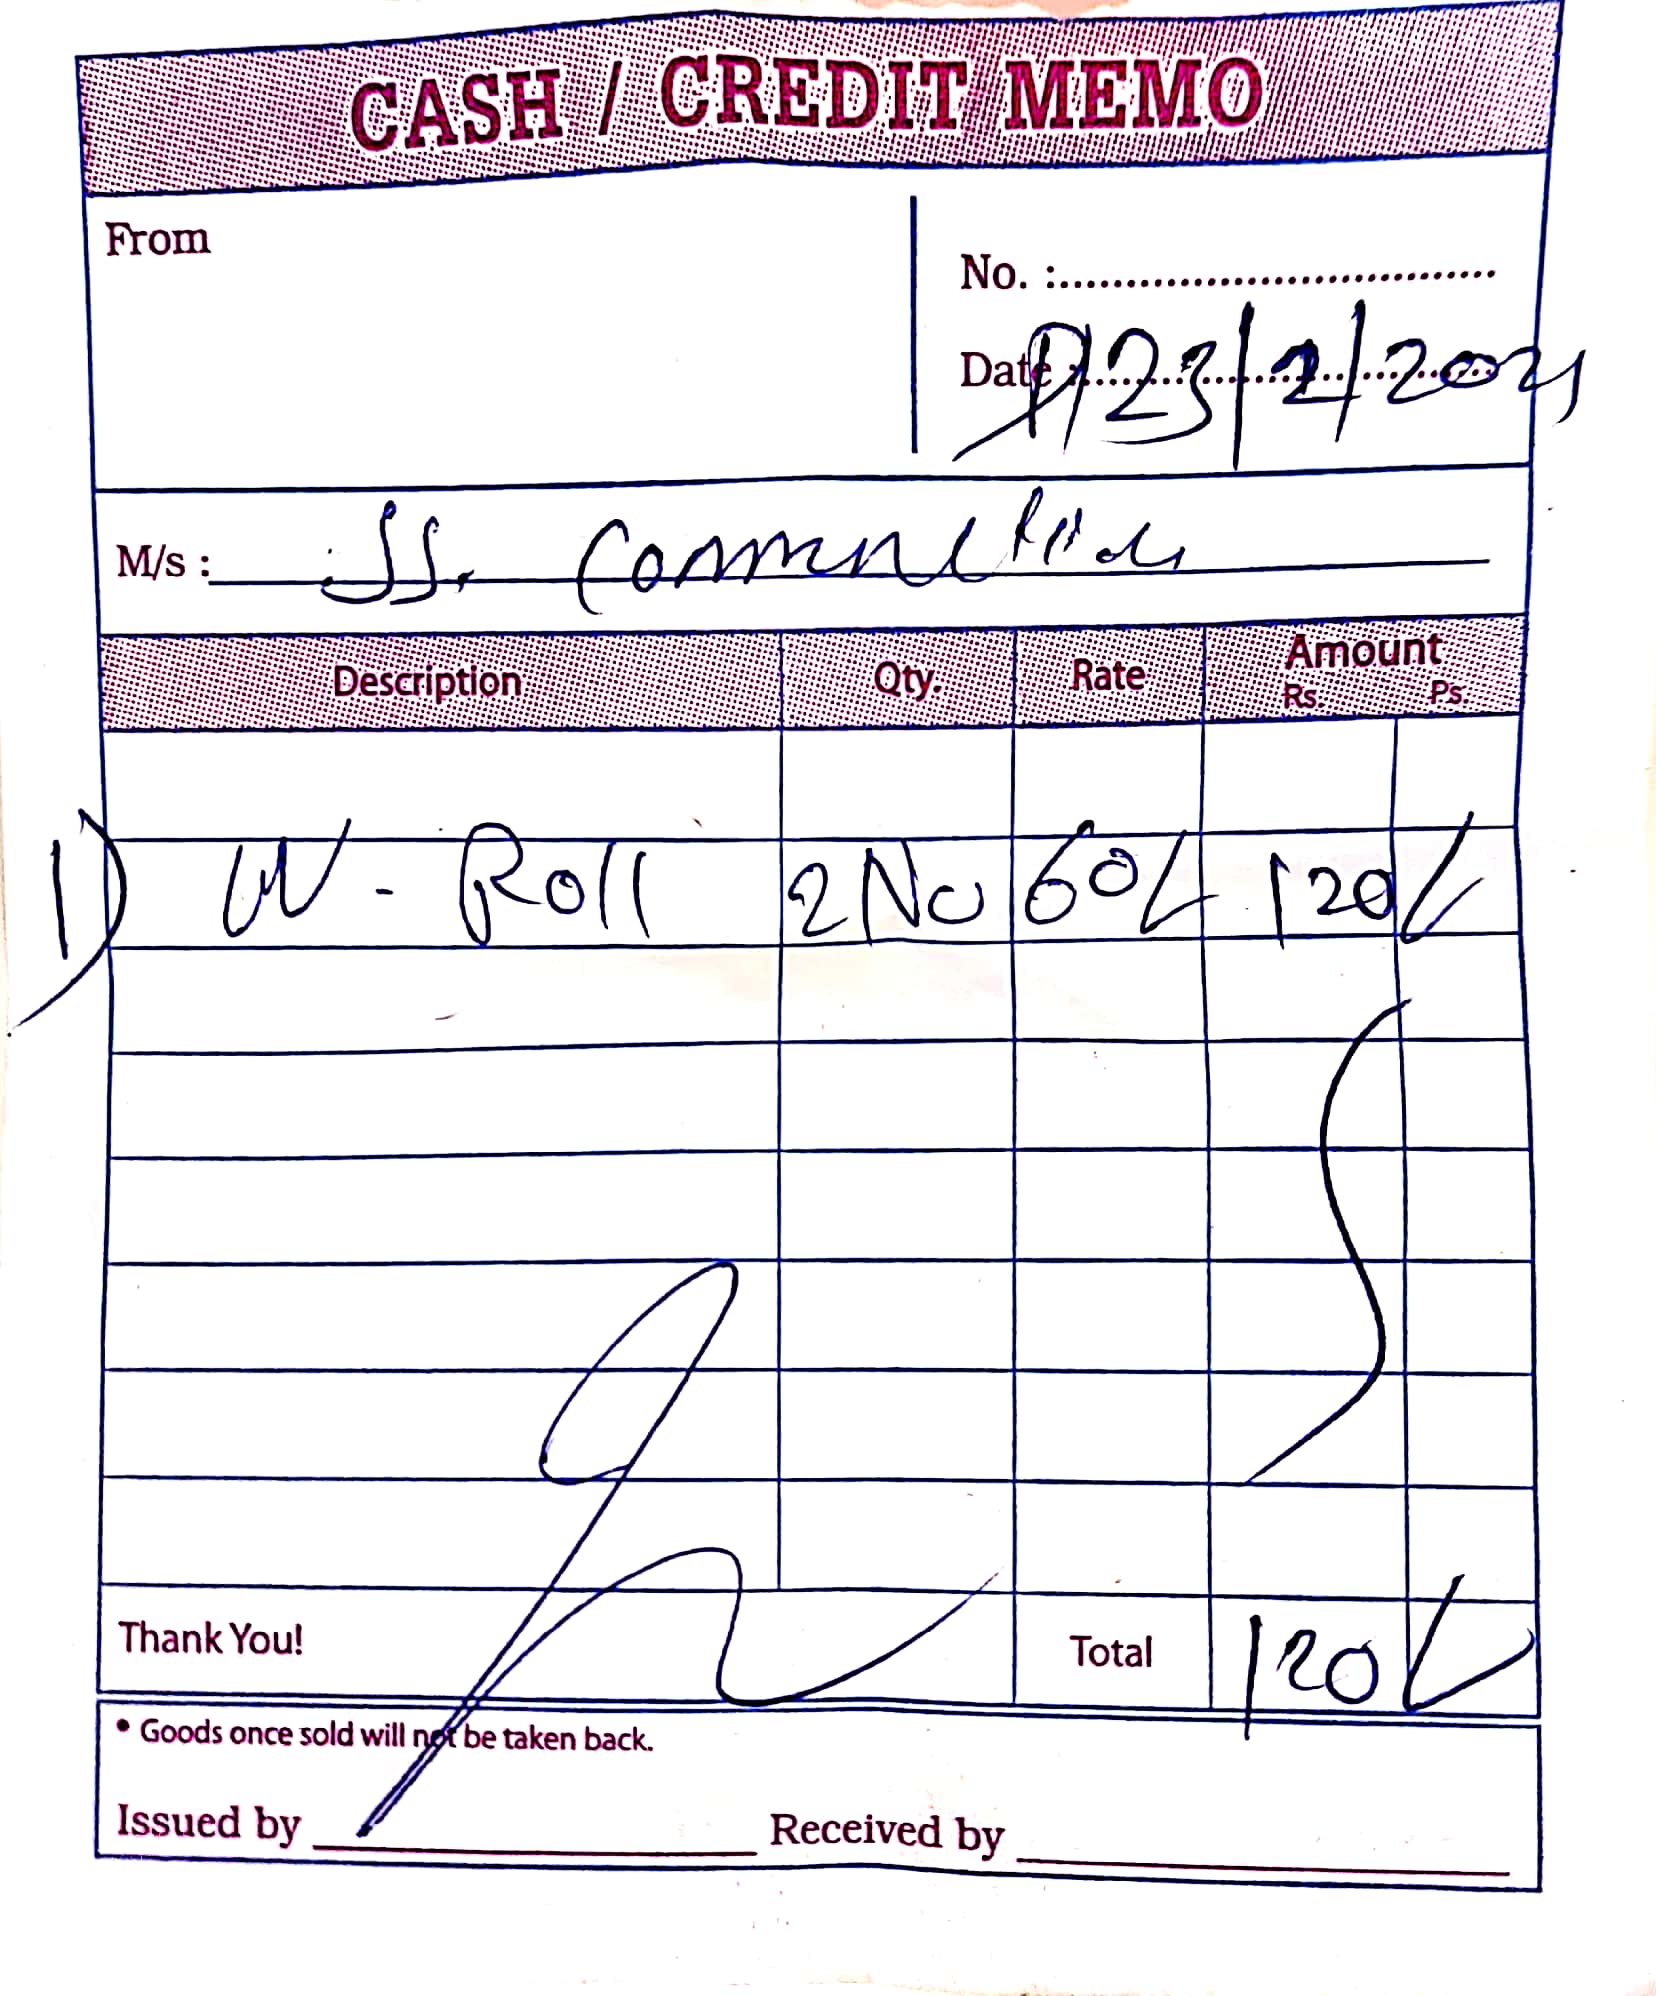 CASH / CREDIT MEMO
From
No. :
Date : 23/2/2021
M/s : SS.
Description Qty. Rate Amount
Rs. Ps.
1) W - Roll 2No 60/- 120/-
Thank You! Total 120/-
• Goods once sold will not be taken back.
Issued by Received by